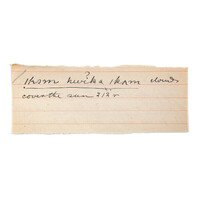 ikom hwika ikom clouds
cover the sun 212 r